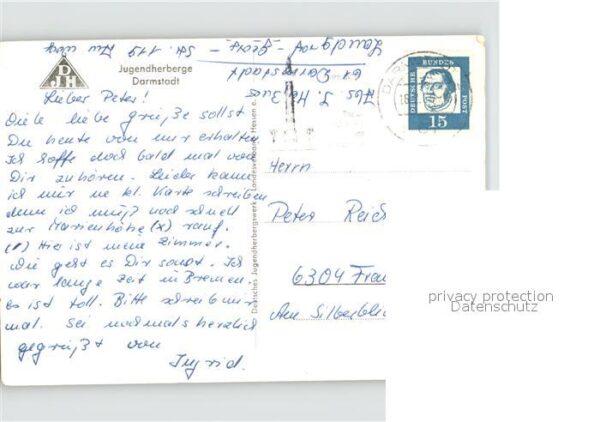 DJH
Jugendherberge
Darmstadt
Landgraf-Georg-Str. 119
61 Darmstadt
Abs. I.
Lieber Peter!
Viele liebe Grüße sollst
Du heute von mir erhalten
Ich hoffe doch bald mal von
Dir zu hören. Leider kann
ich nur ne kl. Karte schreiben
denn ich muß noch schnell
zur Marienhöhe (x) rauf.
(1) Hier ist mein Zimmer.
Wie geht es Dir sonst. Ich
war lange Zeit in Bremen.
es ist toll. Bitte schreib mir
mal. Sei nochmals herzlich
gegrüßt von
Ingrid.
Deutsches Jugendherbergswerk, Landesverband Hessen e.
DEUTSCHE BUNDESPOST
15
Herrn
Peter Reic
6304
Am
privacy protection
Datenschutz